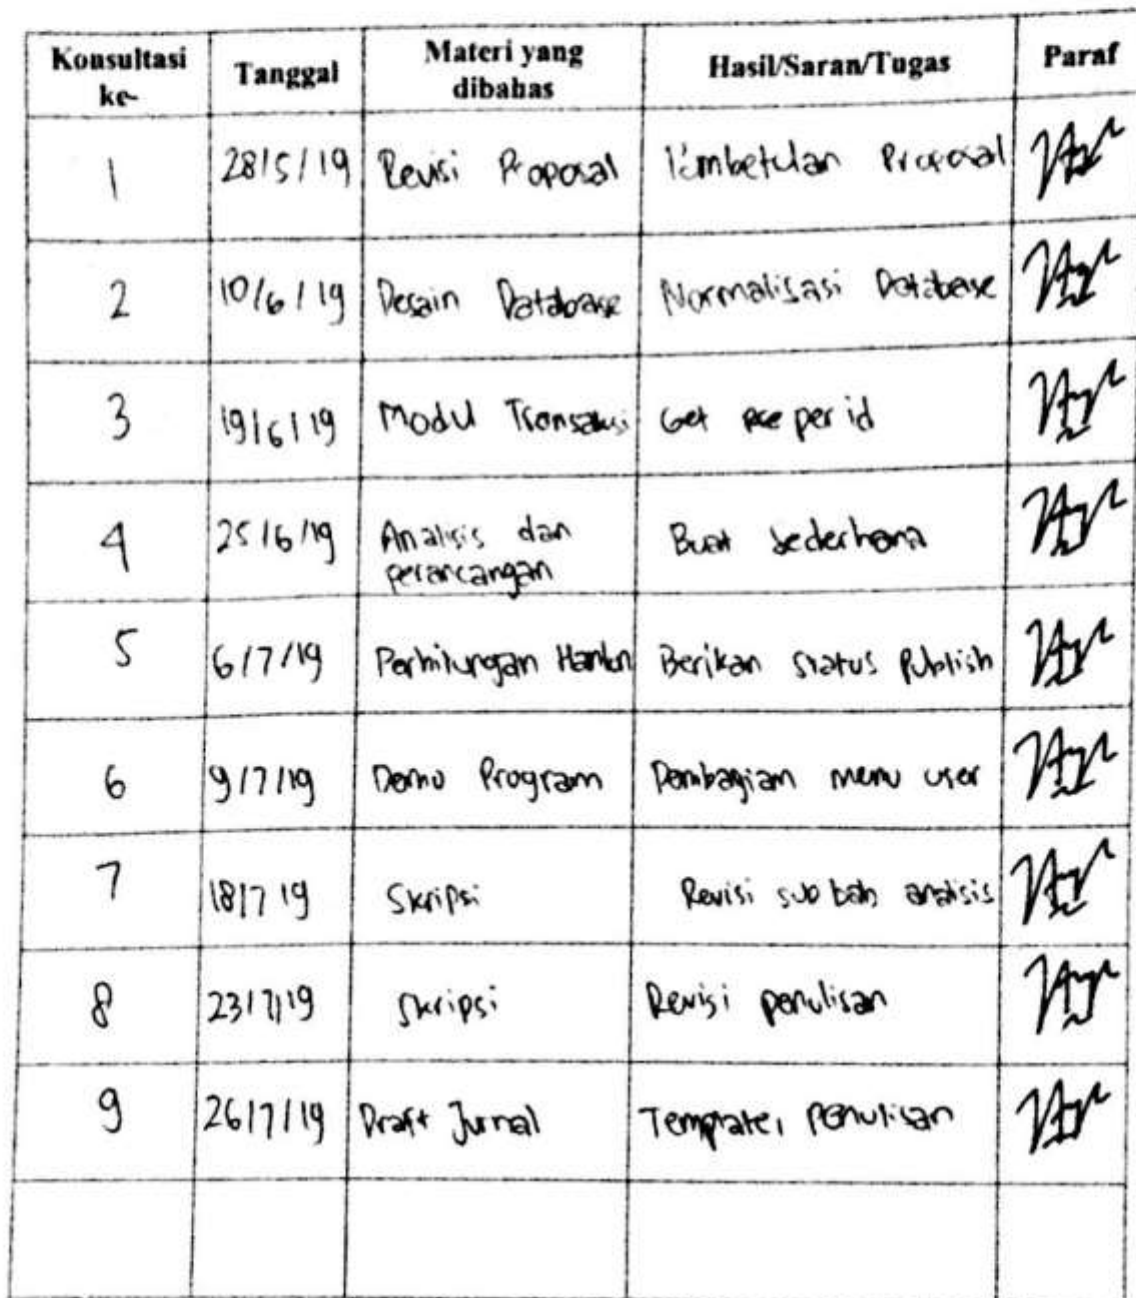 Konsultasi ke- Tanggal Materi yang dibahas Hasil/Saran/Tugas Paraf
1 28/5/19 Revisi Proposal Pembetulan Proposal
2 10/6/19 Desain Database Normalisasi Database
3 19/6/19 Modul Transaksi Get per id
4 25/6/19 Analisis dan perancangan Buat sederhana
5 6/7/19 Perhitungan Berikan status Publish
6 9/7/19 Demo Program Pembagian menu user
7 18/7 19 Skripsi Revisi sub bab analisis
8 23/7/19 Skripsi Revisi penulisan
9 26/7/19 Draft Jurnal Template, Penulisan